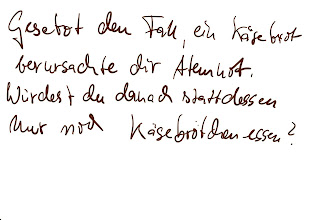 Gesetzt den Fall, ein Käsebrot
verursachte dir Atemnot.
Würdest du danach stattdessen
nur noch Käsebrötchen essen?